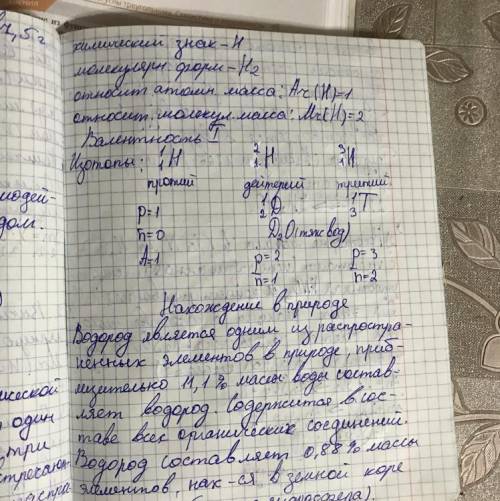 химический знак – H
молекулярн. форм – H₂
относит атомн. масса: Ar(H)=1
относит. молекул. масса: Mr(H)=2
Валентность I
Изотопы: ¹₁H ²₁H ³₁H
протий дейтерий тритий
¹₂D ¹₃T
p=1
n=0 D₂O (тяж вод)
A=1 p=2 p=3
n=1 n=2
Нахождение в природе
Водород является одним из распростра-
ненных элементов в природе, приб-
лизительно 11,1% массы воды состав-
ляет водород. Содержится в сос-
таве всех органических соединений.
Водород составляет 0,88% массы
элементов, нах-ся в земной коре
7,5г
модей-
дом.
ической
один
три